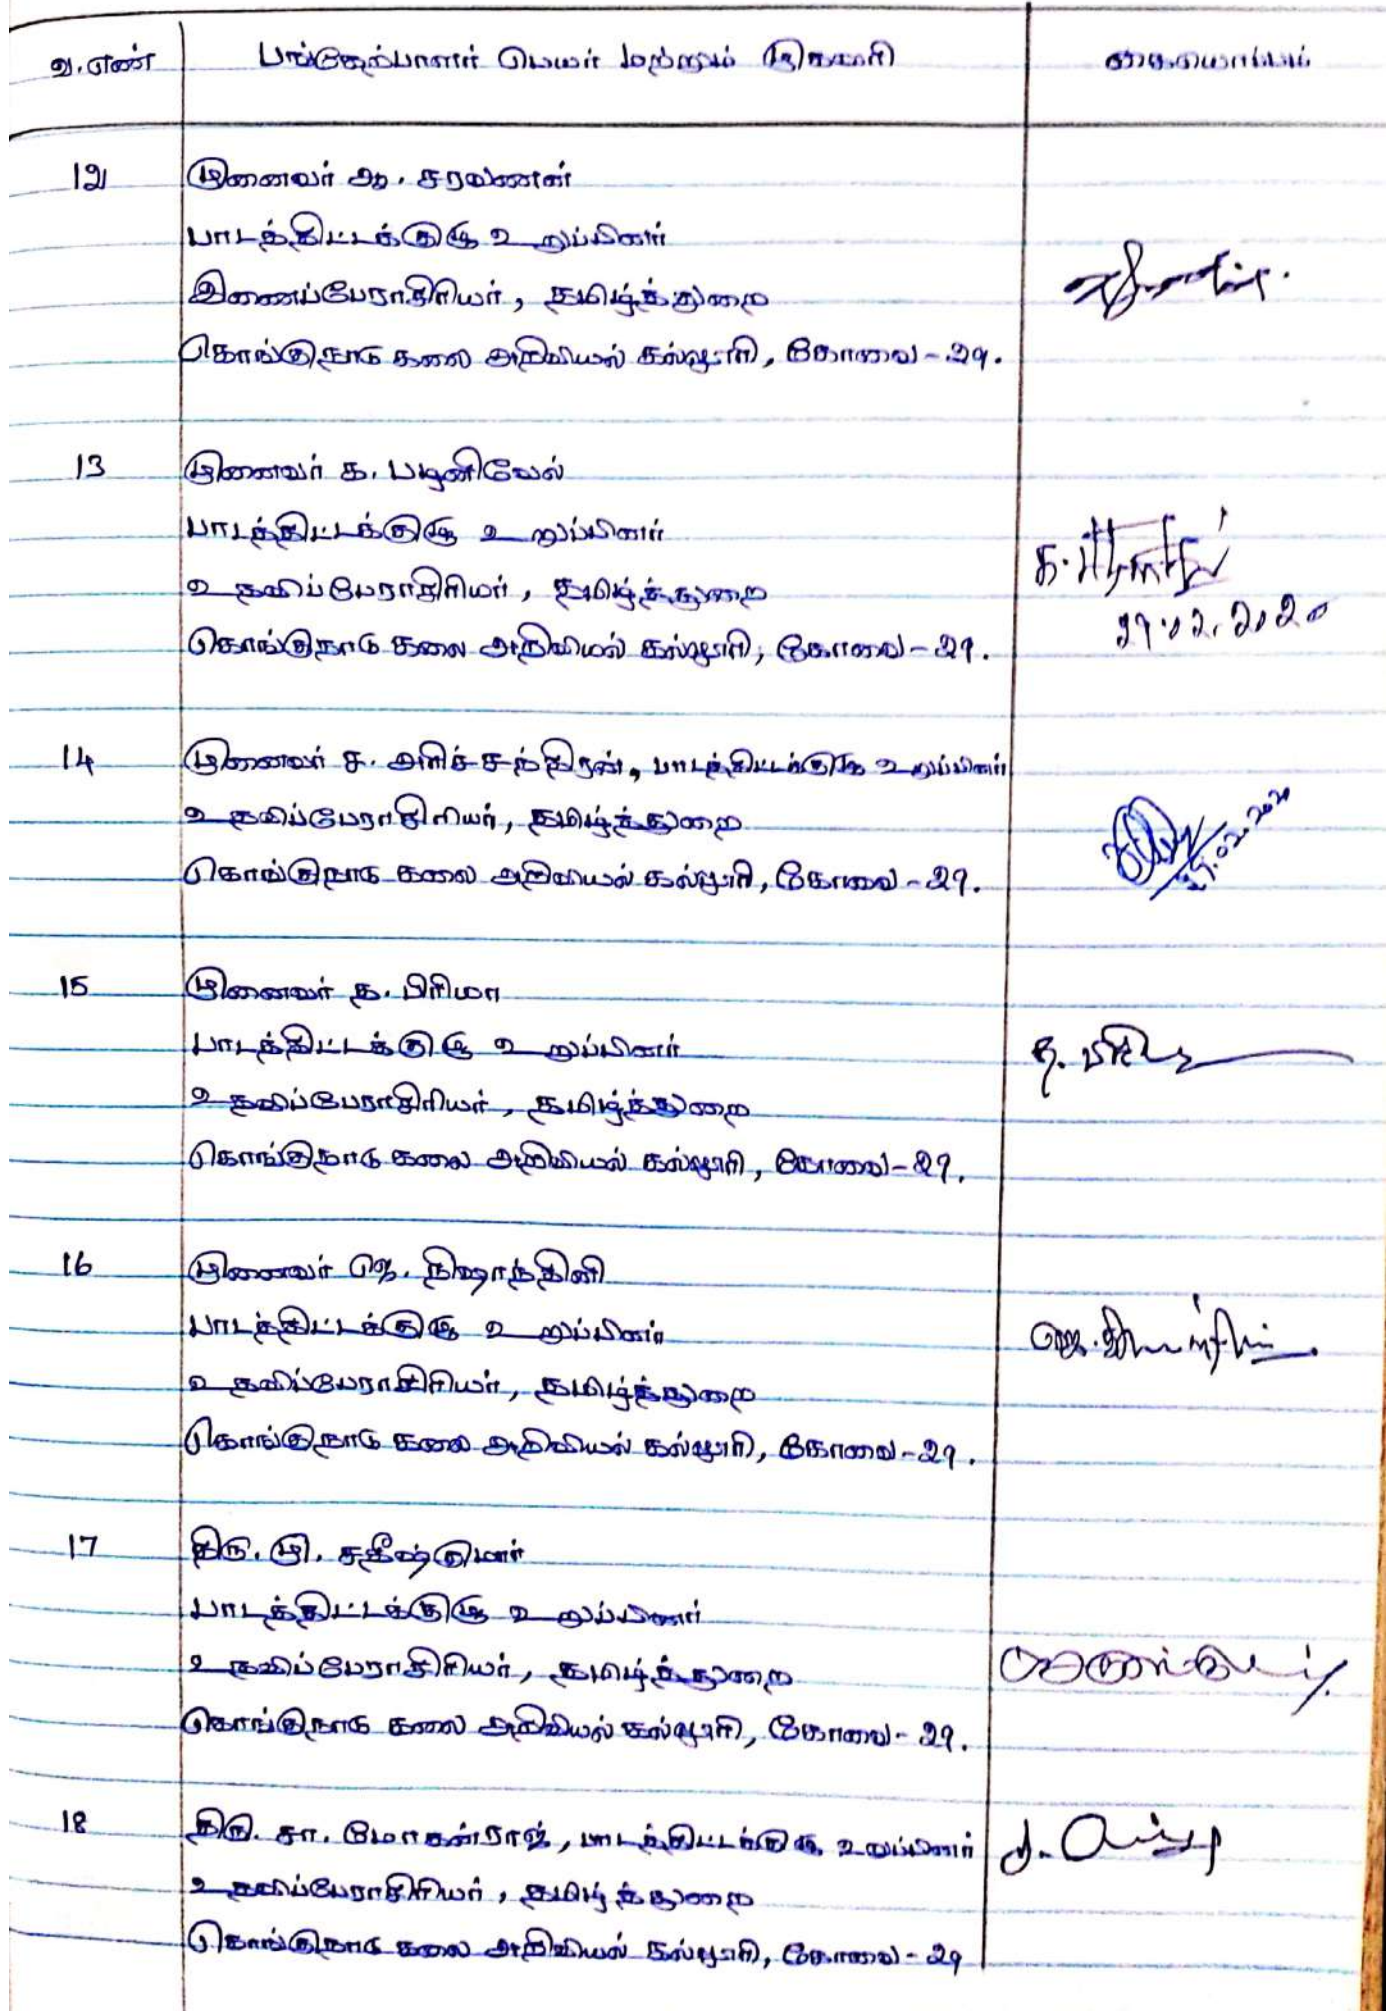 வ.எண் பங்கேற்பாளர் பெயர் மற்றும் முகவரி கையொப்பம்
12 முனைவர் ஆ. சரவணன்
பாடத்திட்டக்குழு உறுப்பினர்
இணைப்பேராசிரியர், தமிழ்த்துறை
கொங்குநாடு கலை அறிவியல் கல்லூரி, கோவை - 29.
13 முனைவர் க. பழனிவேல்
பாடத்திட்டக்குழு உறுப்பினர்
உதவிப்பேராசிரியர், தமிழ்த்துறை
27.02.2020
கொங்குநாடு கலை அறிவியல் கல்லூரி, கோவை - 29.
14 முனைவர் ச. அரிச்சந்திரன், பாடத்திட்டக்குழு உறுப்பினர்
உதவிப்பேராசிரியர், தமிழ்த்துறை
27.02.2020
கொங்குநாடு கலை அறிவியல் கல்லூரி, கோவை - 29.
15 முனைவர் த. பிரியா
பாடத்திட்டக்குழு உறுப்பினர்
உதவிப்பேராசிரியர், தமிழ்த்துறை
கொங்குநாடு கலை அறிவியல் கல்லூரி, கோவை - 29.
16 முனைவர் ஜெ. நிஷாந்தினி
பாடத்திட்டக்குழு உறுப்பினர்
உதவிப்பேராசிரியர், தமிழ்த்துறை
கொங்குநாடு கலை அறிவியல் கல்லூரி, கோவை - 29.
17 திரு. மு. சதீஷ்குமார்
பாடத்திட்டக்குழு உறுப்பினர்
உதவிப்பேராசிரியர், தமிழ்த்துறை
கொங்குநாடு கலை அறிவியல் கல்லூரி, கோவை - 29.
18 திரு. சா. மோகன்ராஜ், பாடத்திட்டக்குழு உறுப்பினர்
உதவிப்பேராசிரியர், தமிழ்த்துறை
கொங்குநாடு கலை அறிவியல் கல்லூரி, கோவை - 29